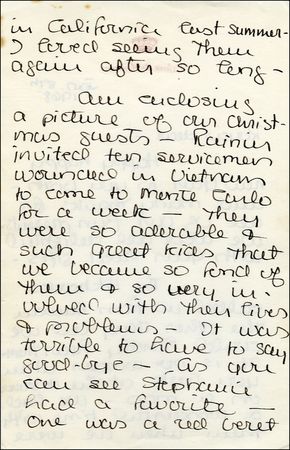 in California last summer-
I loved seeing them
again after so long -
Am enclosing
a picture of our Christ-
mas guests - Rainier
invited ten servicemen
wounded in Vietnam
to come to Monte Carlo
for a week - They
were so adorable &
such great kids that
we became so fond of
them & so very in-
volved with their lives
& problems - It was
terrible to have to say
good-bye - As you
can see Stephanie
had a favorite -
One was a red beret